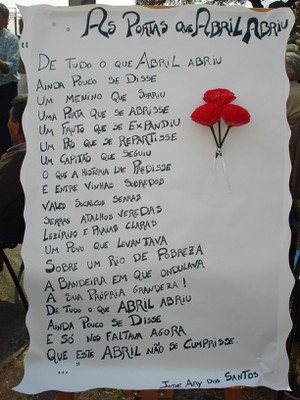 As Portas que Abril Abriu
"
De tudo o que Abril abriu
Ainda pouco se disse
Um menino que sorriu
Uma porta que se abrisse
Um fruto que se expandiu
Um pão que se repartisse
Um capitão que seguiu
O que a história lhe predisse
E entre vinhas sobredos
Vales socalcos serras
Serras atalhos veredas
Lezírias e praias claras
Um povo que levantava
Sobre um rio de pobreza
A bandeira em que ondulava
A sua própria grandeza!
De tudo o que Abril abriu
Ainda pouco se disse
E só nos faltava agora
Que este Abril não se cumprisse.
... "
José Ary dos Santos